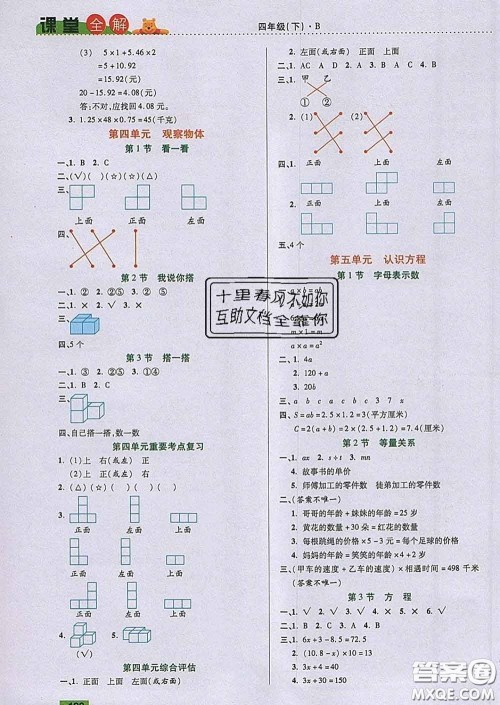 课堂全解
四年级(下)·B
(3) 5×1+5.46×2
=5+10.92
=15.92(元)
20-15.92=4.08(元)
答:不对,应找回4.08元。
3. 1.25×48×0.75=45(千克)
第四单元 观察物体
第1节 看一看
一、1. B 2. C
二、(√)( )(☆)(☆)(△)
三、
上面 正面 左面
四、
第2节 我说你搭
一、1. ② 2. ②⑤ 3. ②
二、1. × 2. × 3. √
三、
四、5个
第3节 搭一搭
一、1. ③ 2. ②⑤ 3. ①④
二、1. √ 2. √ 3. ×
三、
四、自己搭一搭,数一数
第四单元重要考点复习
1. (1)上 右(或左) 正
(2)上 正 右(或左)
2.
正面 左面 上面
3.
正面 左面 上面
4. 5. 6. √ ×
7.
第四单元综合评估
一、1. 正面 上面 左面(或右面)
2. 左面(或右面) 正面 上面
二、1. AC A D 2. A 3. B 4. C
三、1. 甲 乙
① ②
2. (1) (2)
正面 正面
四、
正面 上面 左面
正面 上面 左面
五、4个
第五单元 认识方程
第1节 字母表示数
a×a=a²
二、1. 4a
2. 120+a
3. 20b
三、a b c a b c a c b c
四、S=ab=2.5×1.2=3(平方厘米)
C=2(a+b)=2×(2.5+1.2)=7.4(厘米)
第2节 等量关系
一、1. ax 2. s÷t 3. mn
4. 故事书的单价
5. 师傅加工的零件数 徒弟加工的零件数
二、(答案不唯一)
1. 哥哥的年龄+妹妹的年龄=25岁
2. 黄花的数量+30朵=红花的数量
3. 每根跳绳的价格×5-3元=每个足球的价格
4. 妈妈的年龄=笑笑的年龄×4+2岁
三、(甲车的速度+乙车的速度)×相遇时间=498千米
(答案不唯一)
第3节 方程
一、1. √ 2. × 3. √ 4. × 5. × 6. √
二、1. C 2. B 3. C 4. A 5. B
三、1. 6x+3-8=72.5
2. (10.8-x)×2=13.6
3. 3x-30=150
4. 3x+30=150
十里春风不如你
互助文档全靠你
答案圈
MXQE.COM